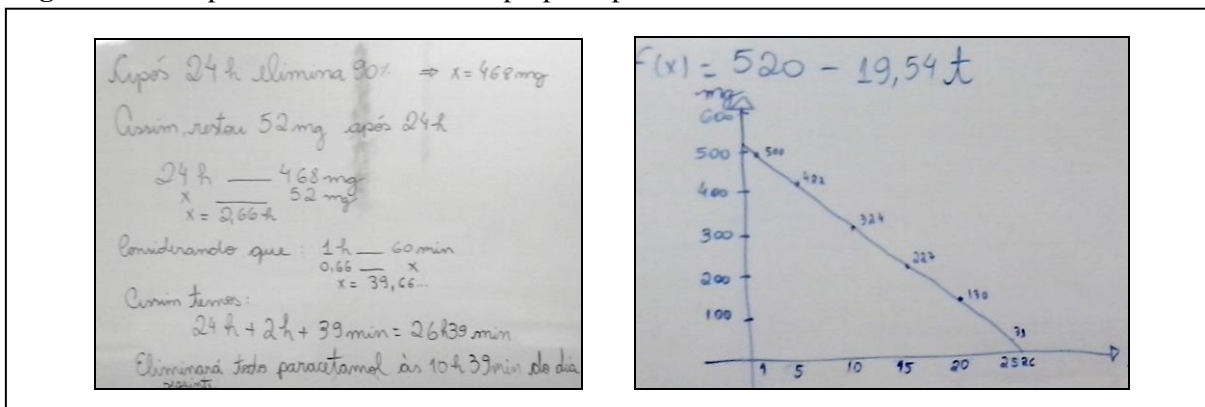 Após 24 h elimina 90% ⇒ x = 468 mg
Assim, restou 52 mg após 24 h
24 h ___ 468 mg
x ___ 52 mg
x = 2,66 h
Considerando que: 1 h __ 60 min
0,66 __ x
x = 39,66...
Assim temos:
24 h + 2 h + 39 min = 26h39 min
Eliminará todo paracetamol às 10 h 39min do dia
F(x) = 520 - 19,54 t
mg
600
500
400
300
200
100
500
422
324
227
130
39
1 5 10 15 20 25 26